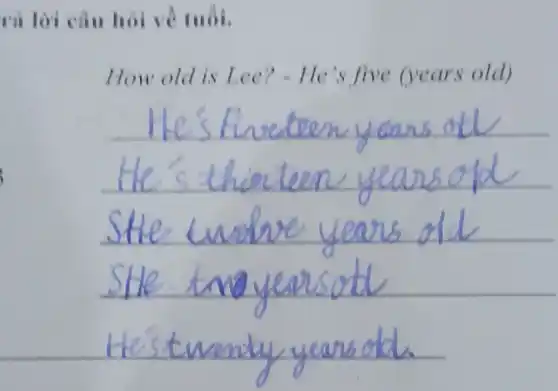 rả lời câu hỏi về tuổi.
How old is Lee? - He's five (years old)
He's fiveteen years old
He's thirteen years old
SHe twelve years old
SHe two years old
He's twenty years old.